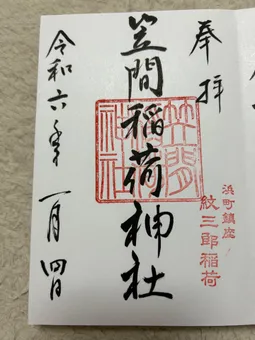 奉拝
浜町鎮座
紋三郎稲荷
笠間稲荷神社
笠間
稲荷
神社
令和六年一月四日